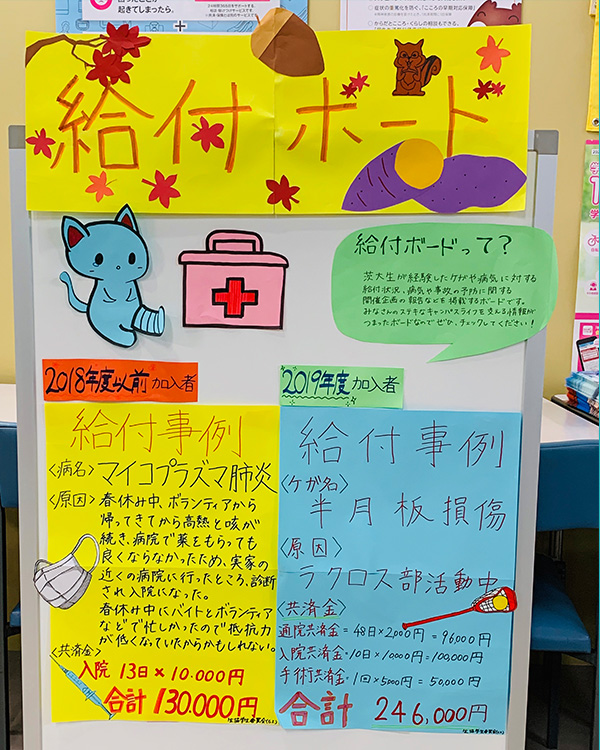 起きてしまったら。
給付ボード
給付ボードって？
茨大生が経験したケガや病気に対する
給付状況、病気や事故の予防に関する
開催企画の報告などを掲載するボードです。
みなさんのステキなキャンパスライフを支える情報が
つまったボードなのでぜひ、チェックしてください！
2018年度以前 加入者
給付事例
〈病名〉マイコプラズマ肺炎
〈原因〉春休み中、ボランティアから
帰ってきてから高熱と咳が
続き、病院で薬をもらっても
良くならなかったため、実家の
近くの病院に行ったところ、診断
され入院になった。
春休み中にバイトとボランティア
などで忙しかったので抵抗力
が低くなっていたからかもしれない。
〈共済金〉
入院 13日×10.000円
合計 130.000円
2019年度 加入者
給付事例
〈ケガ名〉
半月板損傷
〈原因〉
ラクロス部活動中
〈共済金〉
通院共済金=48日×2,000円=96,000円
入院共済金・10日×10,000円=100,000円
手術共済金・1回×5000円=50,000円
合計 246,000円